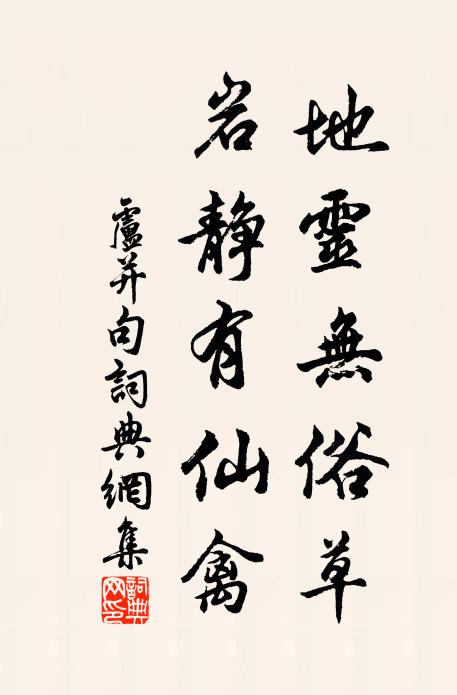 地靈無俗草
岩静有仙禽
盧并句詞典網集
詞典网印